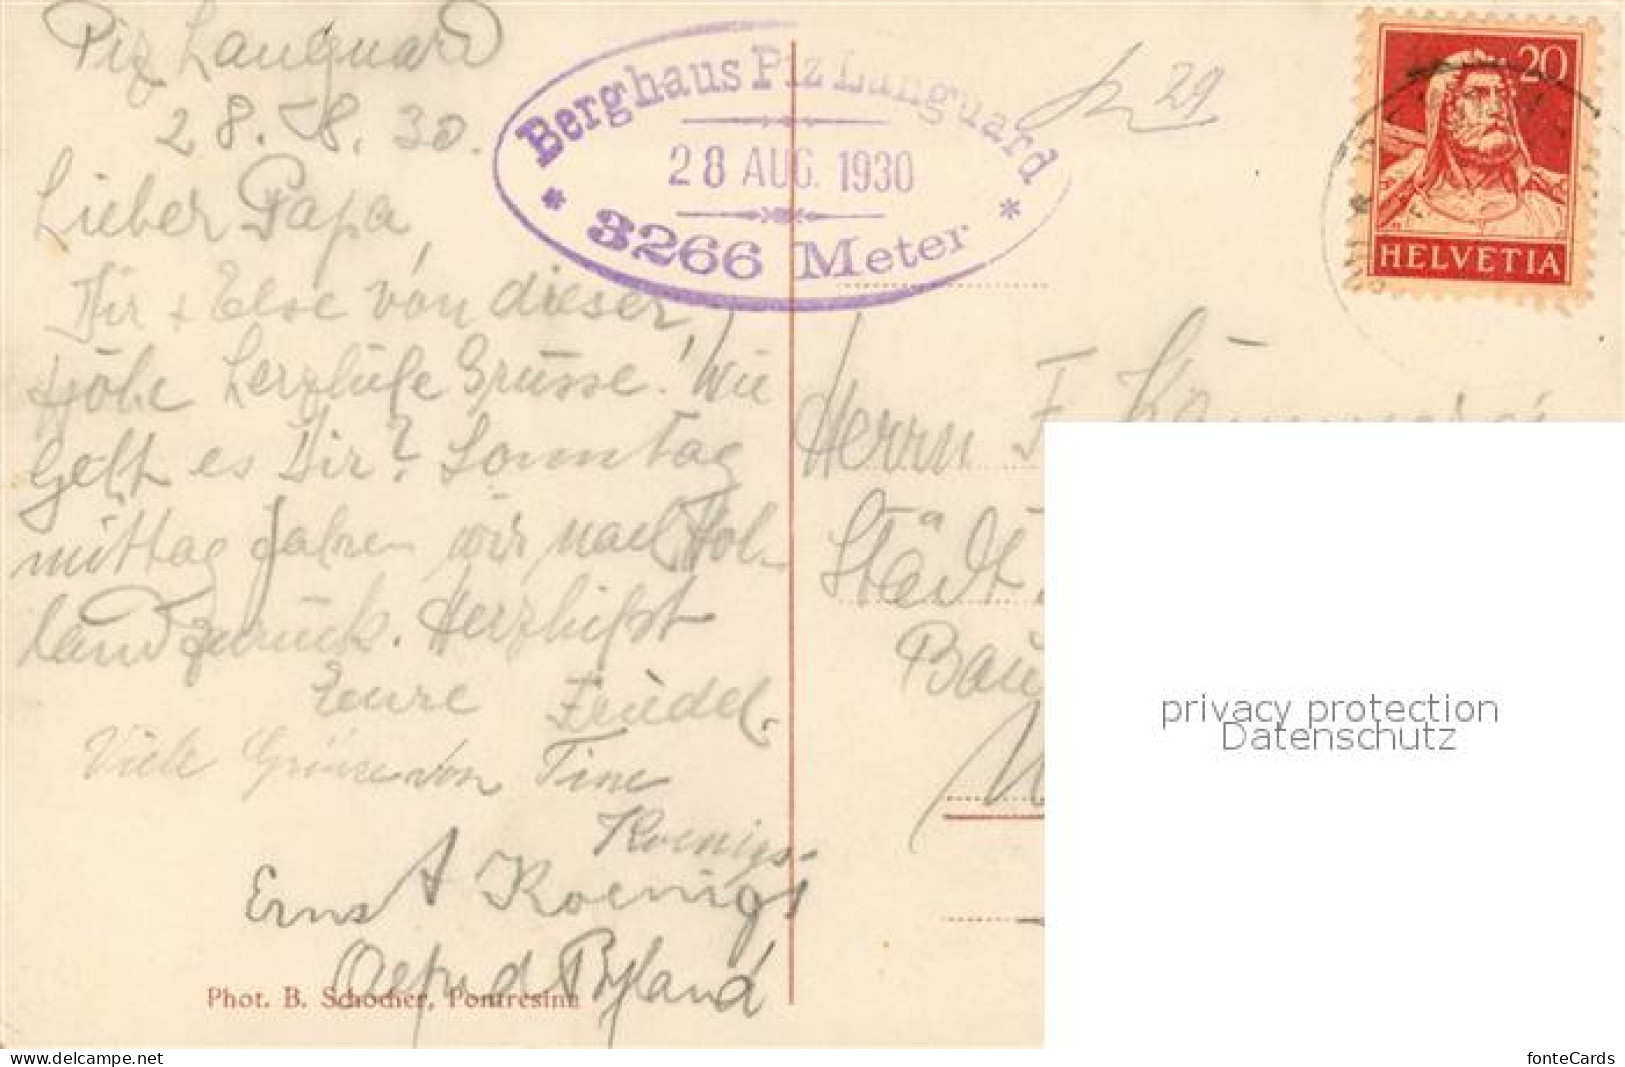 Piz Languard
28. 8. 30.
Lieber Papa,
Dir + Else von dieser
Höhe herzliche Grüsse! Wie
geht es Dir? Sonntag
mittag fahren wir nach Hol-
land zurück. Herzlichst
Eure
Viele Grüsse von Tine
Koenigs.
Ernst Koenigs
Phot. B. Schocher, Pontresina
Berghaus Piz Languard
28 AUG. 1930
* 3266 Meter *
29
20
HELVETIA
Herrn F.
Städt.
privacy protection
Datenschutz
www.delcampe.net
fonteCards